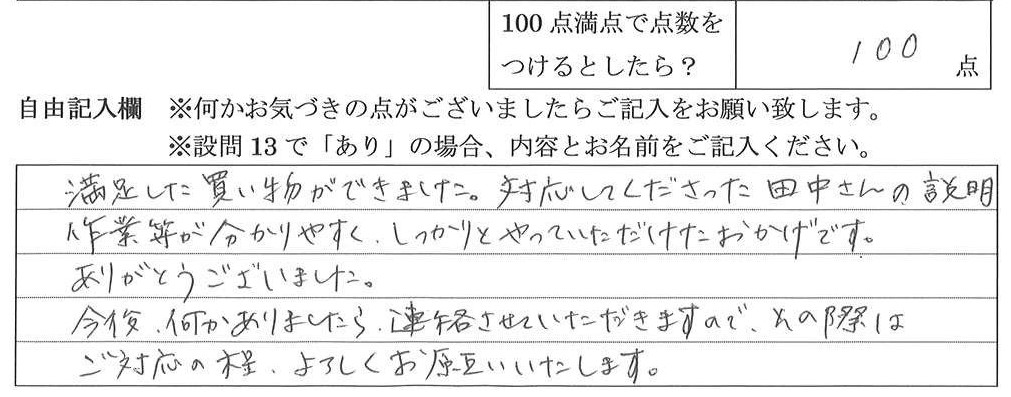 100点満点で点数を
つけるとしたら？
100 点
自由記入欄 ※何かお気づきの点がございましたらご記入をお願い致します。
※設問13で「あり」の場合、内容とお名前をご記入ください。
満足した買い物ができました。対応してくださった田中さんの説明
作業等が分かりやすく、しっかりとやっていただけたおかげです。
ありがとうございました。
今後、何かありましたら、連絡させていただきますので、その際は
ご対応の程、よろしくお願いいたします。